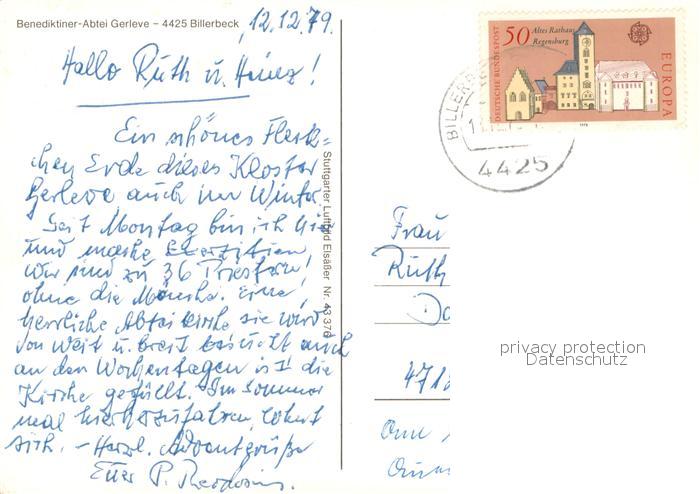 Benediktiner-Abtei Gerleve – 4425 Billerbeck
12.12.79.
Hallo Ruth u. Heinz!
Ein schönes Fleck=
chen Erde dieses Kloster
Gerleve auch im Winter.
Seit Montag bin ich hier
und mache Exerzitien
Wir sind zu 36 Priestern,
ohne die Mönche. Eine
herrliche Abteikirche sie wird
von weit u. breit besucht auch
an den Wochentagen ist die
Kirche gefüllt. Im Sommer
mal hierherzufahren, lohnt
sich. – Herzl. Adventgrüße
Euer P.
Stuttgarter Luftbild Elsäßer Nr. 43 376
DEUTSCHE BUNDESPOST
50
Altes Rathaus
Regensburg
EUROPA
1978
BILLERBE
4425
Frau
Ruth
Do
471
privacy protection
Datenschutz